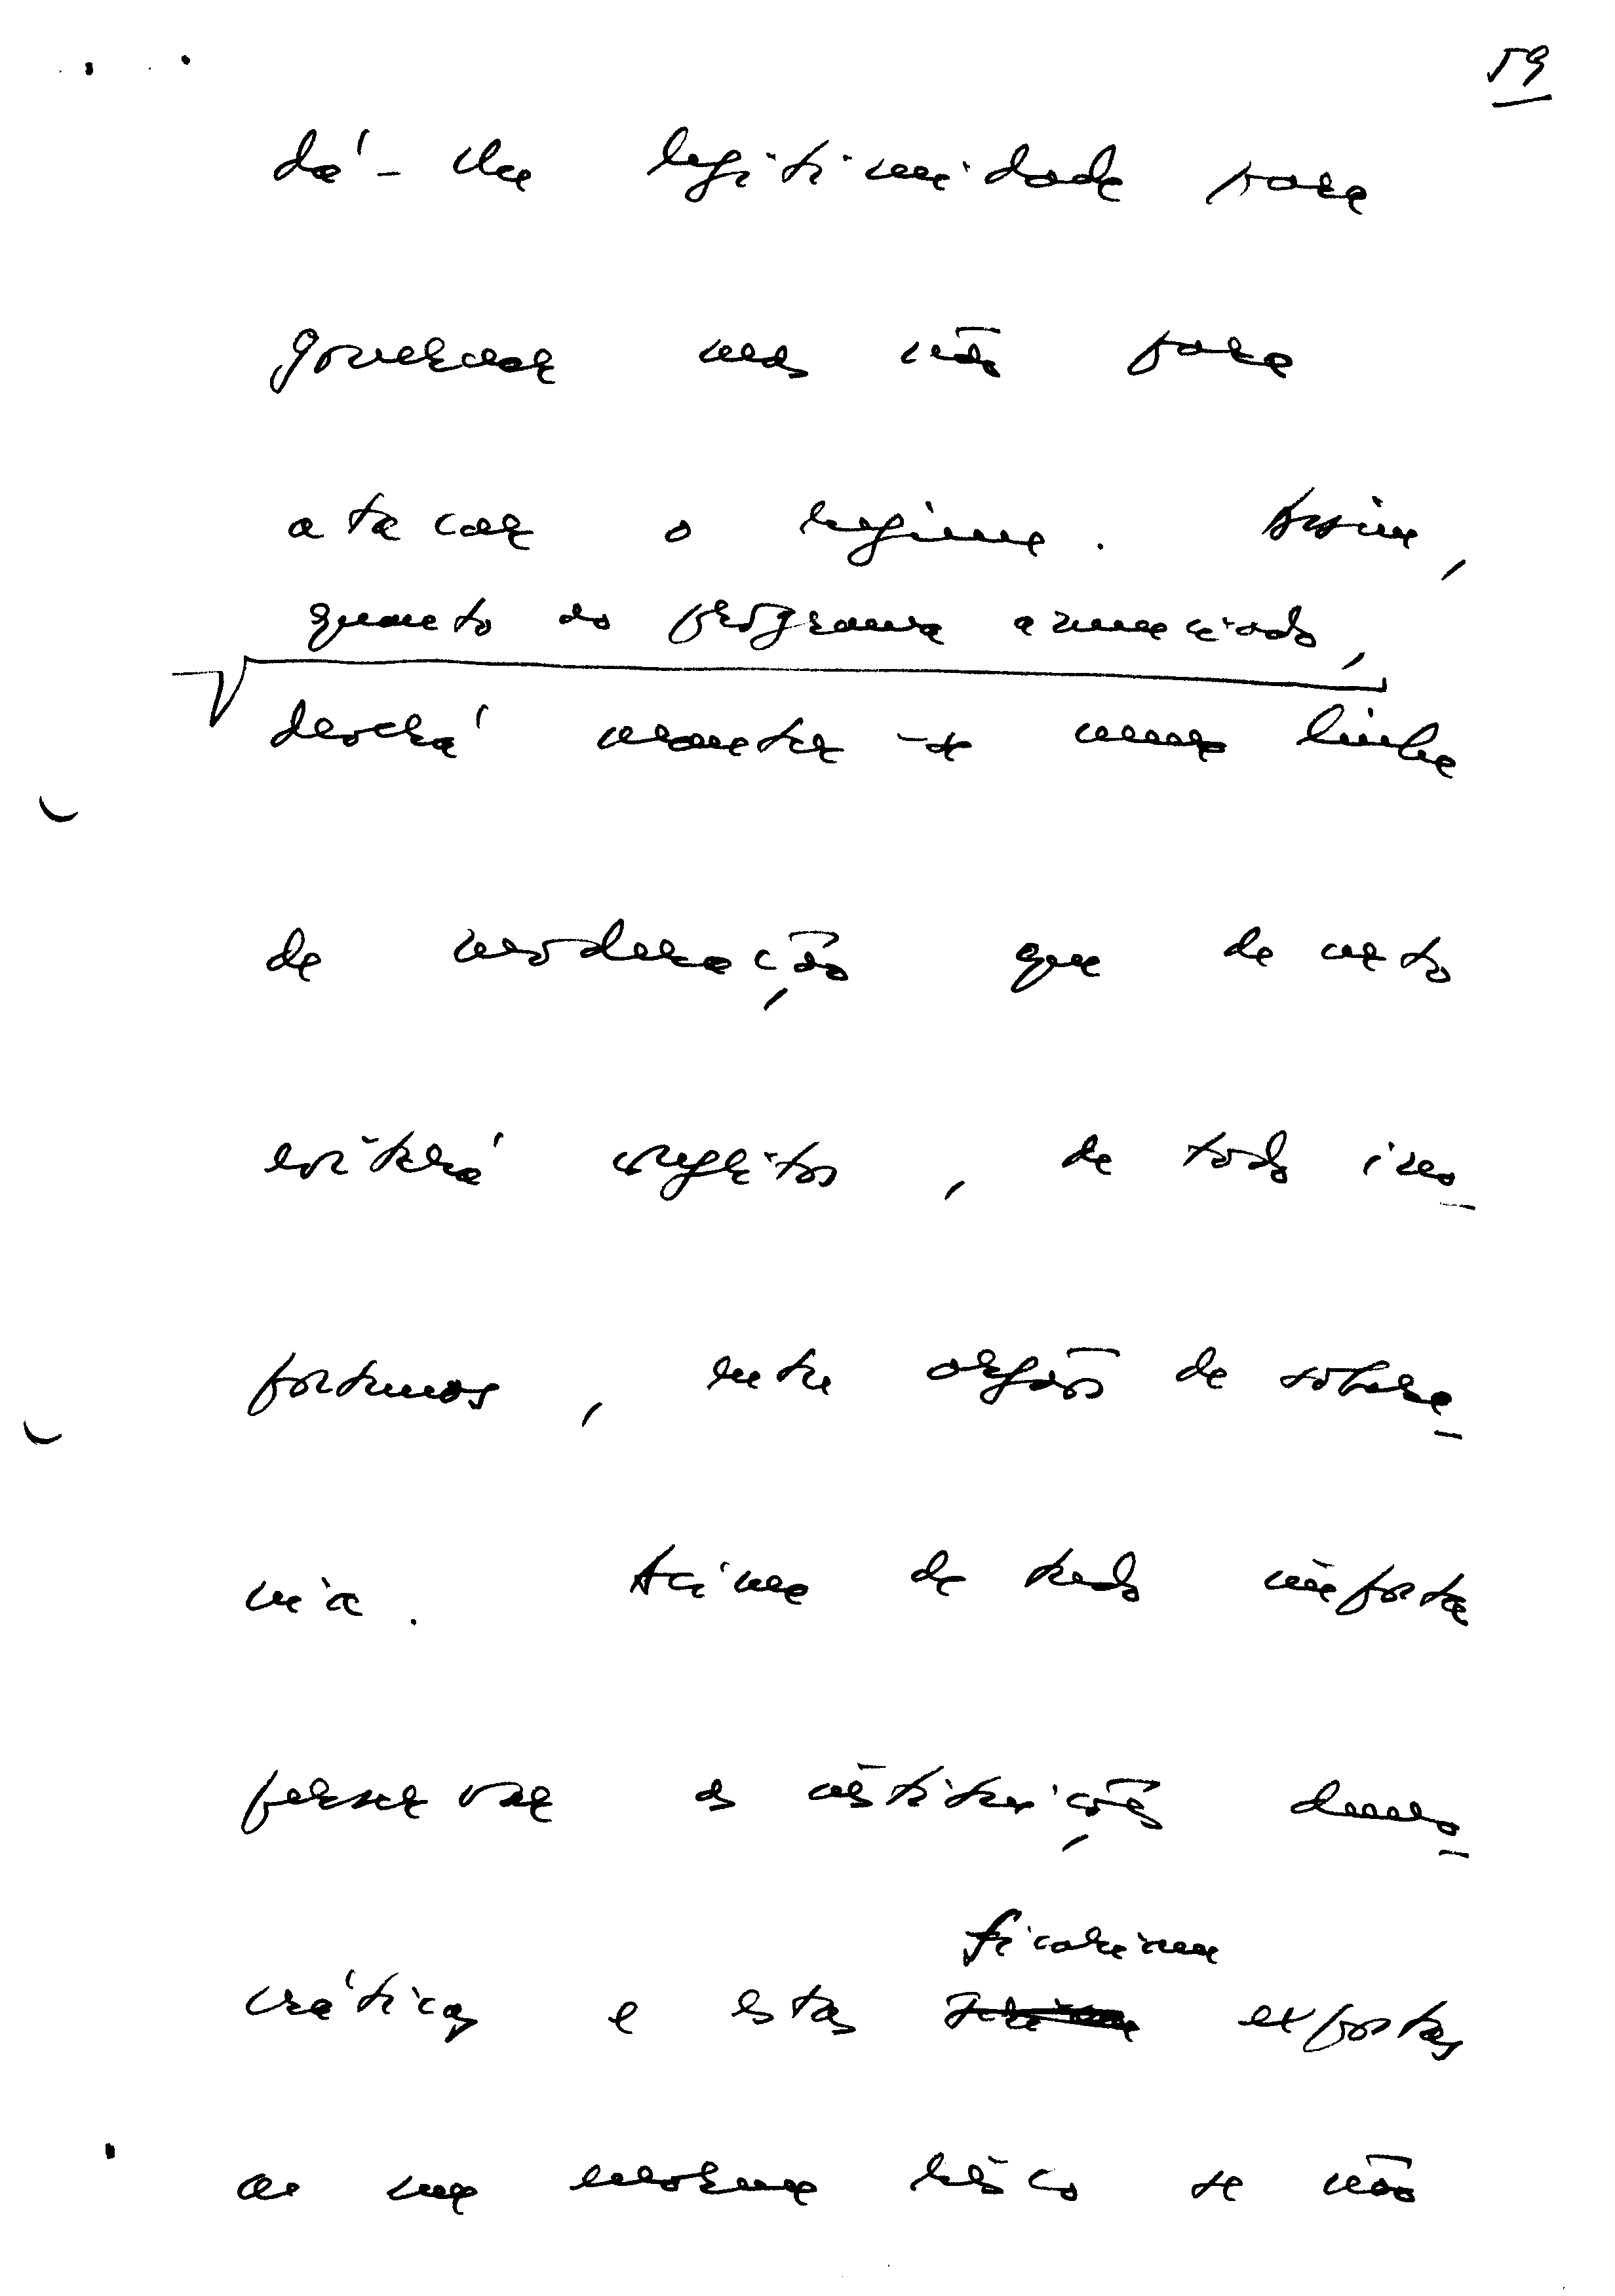 59
dá-lhe legitimidade para
governar mas não para
atacar o regime. Assim,
quanto ao programa anunciado,
deverá manter-se numa linha
de moderação que de certo
evitará conflitos, de todo ino-
portunos, entre orgãos de sobera-
nia. Acima de tudo importa
preservar as instituições demo-
cráticas e estas ficariam expostas
a um enorme risco se não